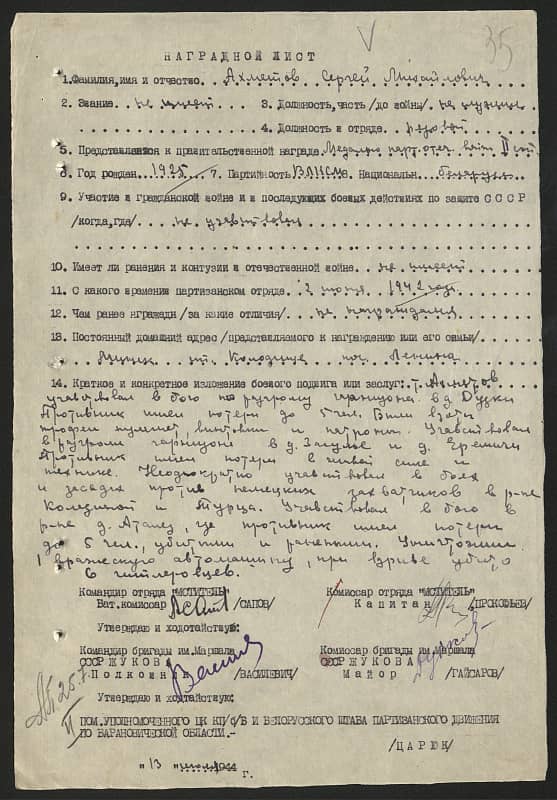 35
НАГРАДНОЙ ЛИСТ
1. Фамилия, имя и отчество. Ахметов Сергей Михайлович
2. Звание. не имеет 3. Должность, часть /до войны/. не служил
4. Должность в отряде. рядовой
5. Представляется к правительственной награде. Медалью парт. отеч. войны II ст.
6. Год рожден. 1925 7. Партийность ВЛКСМ 8. Национальн. белорус
9. Участие в гражданской войне и в последующих боевых действиях по защите СССР
/когда, где/. не участвовал
10. Имеет ли ранения и контузии в отечественной войне. не имеет
11. С какого времени партизанском отряде. 2 июня 1942 года
12. Чем ранее награжден /за какие отличия/. не награждался
13. Постоянный домашний адрес /представляемого к награждению или его семьи/
ст. Колодищи пос. Ленина
14. Краткое и конкретное изложение боевого подвига или заслуг: т. Ахметов
участвовал в бою по разгрому гарнизона в д.
Противник имел потери до 5 чел. Были взяты
трофеи пулемет, винтовки и патроны. Участвовал
в разгроме гарнизона в д. и д. Еремичи
Противник имел потери в живой силе и
технике. Неоднократно участвовал в боях
и засадах против немецких захватчиков в р-не
и Турца. Участвовал в бою в
р-не д. где противник имел потери
до 5 чел., убитыми и ранеными. Уничтожил
1 вражескую автомашину, при взрыве убито
6 гитлеровцев.
Командир отряда "МСТИТЕЛЬ" Комиссар отряда "МСТИТЕЛЬ"
Бат. комиссар /САПОВ/ Капитан /ПРОКОФЬЕВ/
Утверждаю и ходатайствую:
Командир бригады им. Маршала Комиссар бригады им. Маршала
СССР ЖУКОВА СССР ЖУКОВА
Полковник /ВАСИЛЕВИЧ/ Майор /ГАЙСАРОВ/
Утверждаю и ходатайствую:
ПОМ. УПОЛНОМОЧЕННОГО ЦК КП/б/Б И БЕЛОРУССКОГО ШТАБА ПАРТИЗАНСКОГО ДВИЖЕНИЯ
ПО БАРАНОВИЧСКОЙ ОБЛАСТИ.-
/ЦАРЮК/
"13 июля 1944 г.